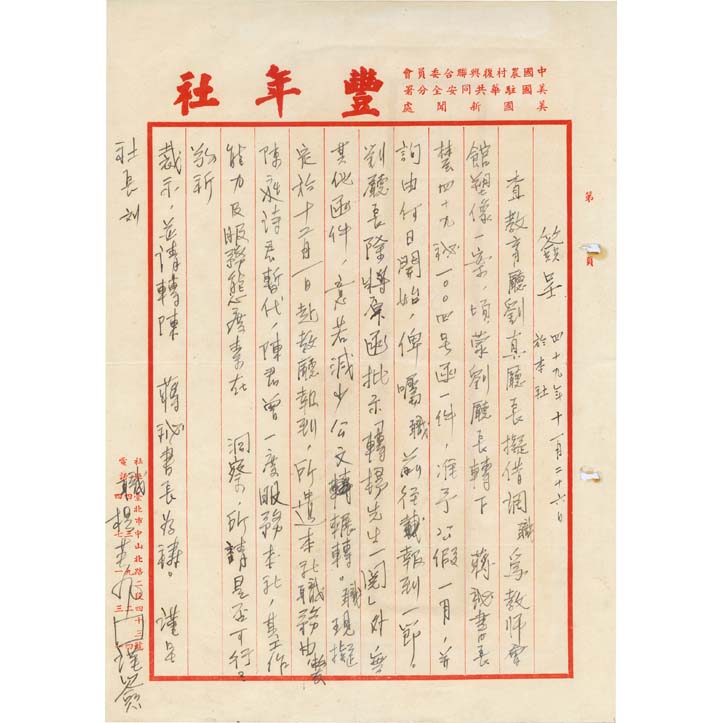 中國農村復興聯合委員會
美國駐華共同安全分署
美國新聞處
豐年社
第　頁
簽呈　四十九年十一月二十六日
於本社
查教育廳劉真廳長擬借調職為教師會
館塑像一案，頃蒙劉廳長轉下　蔣秘書長
四十九秘一〇〇四号函一件，准予公假一月，並
詢由何日開始，俾囑職前往報到一節，
劉廳長除將原函批示「轉楊先生一閱」外無
其他函件，意若減少公文輾轉。職現擬
定於十二月一日赴教廳報到，所遺本社職務由
陳永詩君暫代，陳君曾一度服務本社，其工作
能力及服務態度素在　洞察，所請是否可行？
敬祈
裁示，並請轉陳　蔣秘書長為禱。謹呈
社長
職楊英風謹簽
社址臺北市中山北路二段四十三號
電話